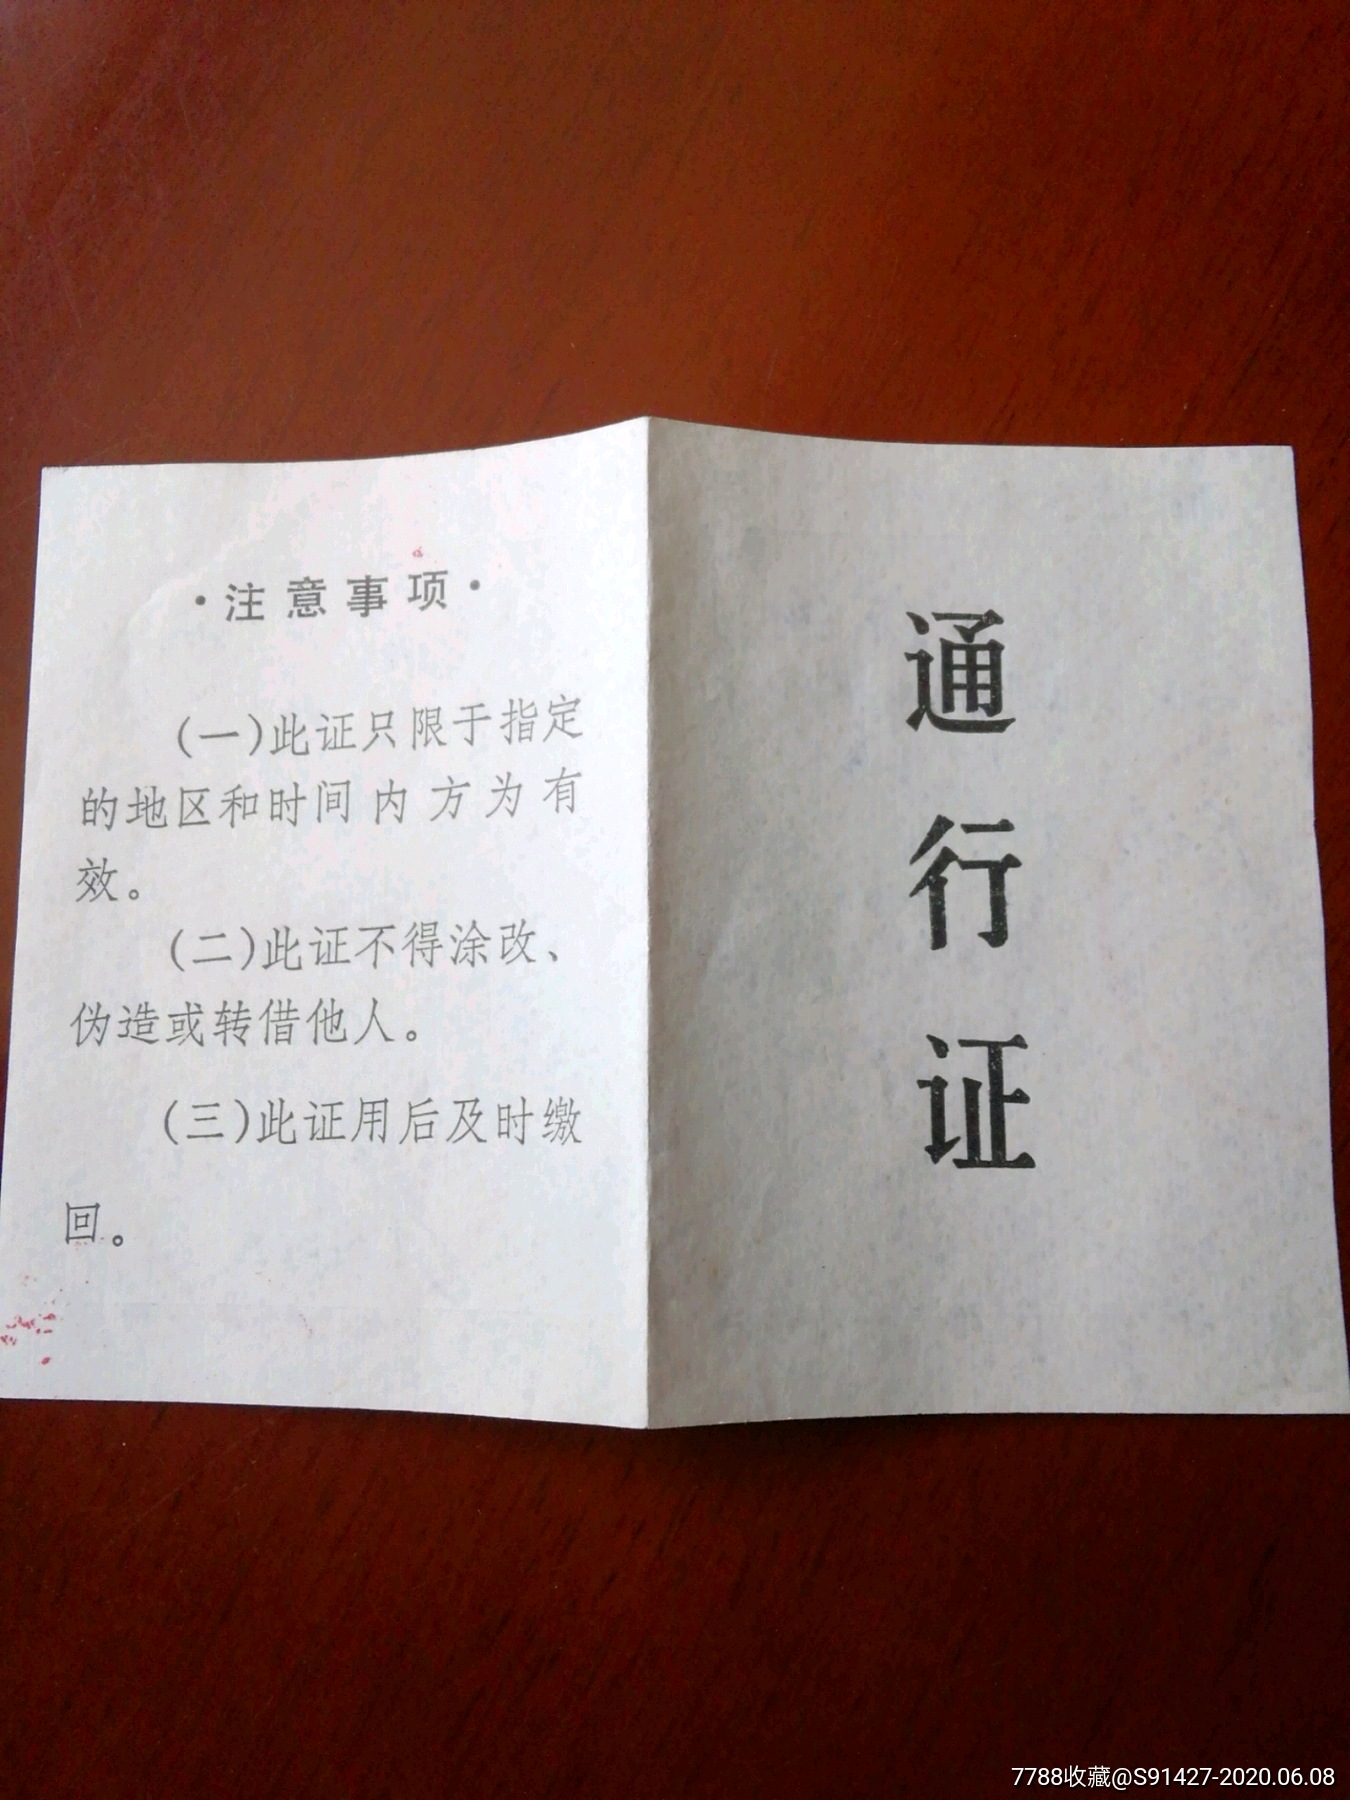 ·注意事项·
(一)此证只限于指定
的地区和时间内方为有
效。
(二)此证不得涂改、
伪造或转借他人。
(三)此证用后及时缴
回。
通
行
证
7788收藏@S91427-2020.06.08